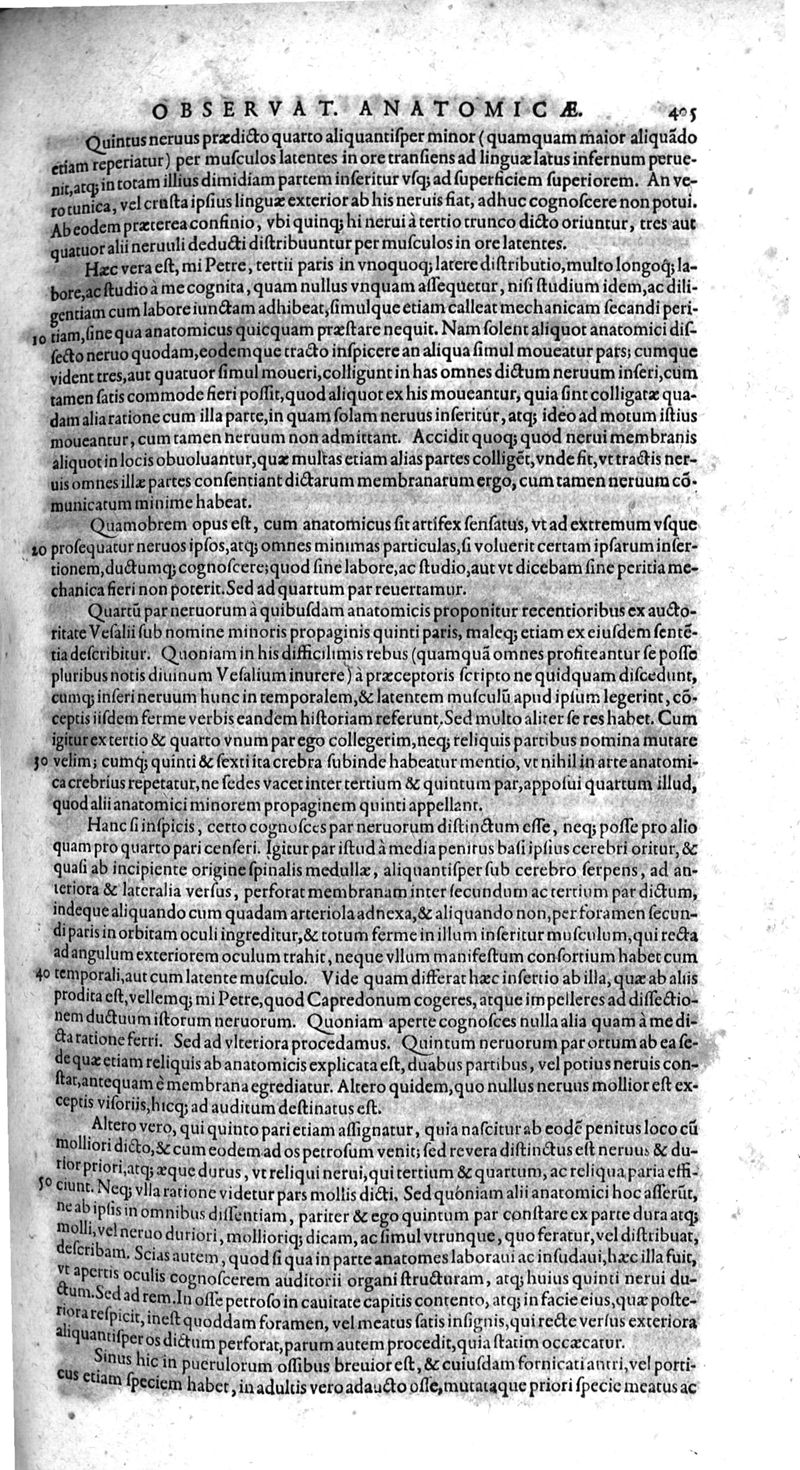 OBSERVAT. ANATOMICÆ. 405
Quintus neruus prædicto quarto aliquantiſper minor (quamquam maior aliquãdo
etiam reperiatur) per muſculos latentes in ore tranſiens ad linguæ latus infernum perue-
nit, atq; in totam illius dimidiam partem inſeritur vſq; ad ſuperficiem ſuperiorem. An ve-
ro tunica, vel cruſta ipſius linguæ exterior ab his neruis fiat, adhuc cognoſcere non potui.
Ab eodem præterea confinio, vbi quinq; hi nerui à tertio trunco dicto oriuntur, tres aut
quatuor alii neruuli deducti diſtribuuntur per muſculos in ore latentes.
Hæc vera eſt, mi Petre, tertii paris in vnoquoq; latere diſtributio, multo longoq́; la-
bore, ac ſtudio à me cognita, quam nullus vnquam aſſequetur, niſi ſtudium idem, ac dili-
gentiam cum labore iunctam adhibeat, ſimulque etiam calleat mechanicam ſecandi peri-
10 tiam, ſine qua anatomicus quicquam præſtare nequit. Nam ſolent aliquot anatomici diſ-
ſecto neruo quodam, eodemque tracto inſpicere an aliqua ſimul moueatur pars; cumque
vident tres, aut quatuor ſimul moueri, colligunt in has omnes dictum neruum inſeri, cum
tamen ſatis commode fieri poſſit, quod aliquot ex his moueantur, quia ſint colligatæ qua-
dam alia ratione cum illa parte, in quam ſolam neruus inſeritúr, atq; ideo ad motum iſtius
moueantur, cum tamen neruum non admittant. Accidit quoq; quod nerui membranis
aliquot in locis obuoluantur, quæ multas etiam alias partes colligẽt, vnde fit, vt tractis ner-
uis omnes illæ partes conſentiant dictarum membranarum ergo, cum tamen neruum cõ-
municatum minime habeat.
Quamobrem opus eſt, cum anatomicus ſit artifex ſenſatus, vt ad extremum vſque
20 proſequatur neruos ipſos, atq; omnes minimas particulas, ſi voluerit certam ipſarum inſer-
tionem, ductumq; cognoſcere; quod ſine labore, ac ſtudio, aut vt dicebam ſine peritia me-
chanica fieri non poterit. Sed ad quartum par reuertamur.
Quartũ par neruorum à quibuſdam anatomicis proponitur recentioribus ex aucto-
ritate Veſalii ſub nomine minoris propaginis quinti paris, maleq; etiam ex eiuſdem ſentẽ-
tia deſcribitur. Quoniam in his difficilimis rebus (quamquã omnes profiteantur ſe poſſe
pluribus notis diuinum Veſalium inurere) à præceptoris ſcripto ne quidquam diſcedunt,
cumq; inſeri neruum hunc in temporalem, & latentem muſculũ apud ipſum legerint, cõ-
ceptis iiſdem ferme verbis eandem hiſtoriam referunt. Sed multo aliter ſe res habet. Cum
igitur ex tertio & quarto vnum par ego collegerim, neq; reliquis partibus nomina mutare
30 velim; cumq; quinti & ſexti ita crebra ſubinde habeatur mentio, vt nihil in arte anatomi-
ca crebrius repetatur, ne ſedes vacet inter tertium & quintum par, appoſui quartum illud,
quod alii anatomici minorem propaginem quinti appellant.
Hanc ſi inſpicis, certo cognoſces par neruorum diſtinctum eſſe, neq; poſſe pro alio
quam pro quarto pari cenſeri. Igitur par iſtud à media penitus baſi ipſius cerebri oritur, &
quaſi ab incipiente origine ſpinalis medullæ, aliquantiſper ſub cerebro ſerpens, ad an-
teriora & lateralia verſus, perforat membranam inter ſecundum ac tertium par dictum,
indeque aliquando cum quadam arteriola adnexa, & aliquando non, per foramen ſecun-
di paris in orbitam oculi ingreditur, & totum ferme in illum inſeritur muſculum, qui recta
ad angulum exteriorem oculum trahit, neque vllum manifeſtum conſortium habet cum
40 temporali, aut cum latente muſculo. Vide quam differat hæc inſertio ab illa, quæ ab aliis
prodita eſt, vellemq; mi Petre, quod Capredonum cogeres, atque impelleres ad diſſectio-
nem ductuum iſtorum neruorum. Quoniam aperte cognoſces nulla alia quam à me di-
cta ratione ferri. Sed ad vlteriora procedamus. Quintum neruorum par ortum ab ea ſe-
de quæ etiam reliquis ab anatomicis explicata eſt, duabus partibus, vel potius neruis con-
ſtat, antequam è membrana egrediatur. Altero quidem, quo nullus neruus mollior eſt ex-
ceptis viſoriis, hicq; ad auditum deſtinatus eſt.
Altero vero, qui quinto pari etiam aſſignatur, quia naſcitur ab eodẽ penitus loco cũ
molliori dicto, & cum eodem ad os petroſum venit; ſed reuera diſtinctus eſt neruus & du-
rior priori, atq; æque durus, vt reliqui nerui, qui tertium & quartum, ac reliqua paria effi-
50 ciunt. Neq; vlla ratione videtur pars mollis dicti. Sed quoniam alii anatomici hoc aſſerũt,
ne ab ipſis in omnibus diſſentiam, pariter & ego quintum par conſtare ex parte dura atq;
molli, vel neruo duriori, mollioriq; dicam, ac ſimul vtrunque, quo feratur, vel diſtribuat,
deſcribam. Scias autem, quod ſi qua in parte anatomes laboraui ac inſudaui, hæc illa fuit,
vt apertis oculis cognoſcerem auditorii organi ſtructuram, atq; huius quinti nerui du-
ctum. Sed ad rem. In oſſe petroſo in cauitate capitis contento, atq; in facie eius, quæ poſte-
riora reſpicit, ineſt quoddam foramen, vel meatus ſatis inſignis, qui recte verſus exteriora
aliquantiſper os dictum perforat, parum autem procedit, quia ſtatim occæcatur.
Sinus hic in puerulorum oſſibus breuior eſt, & cuiuſdam fornicati antri, vel porti-
cus etiam ſpeciem habet, in adultis vero adaucto oſſe, mutataque priori ſpecie meatus ac